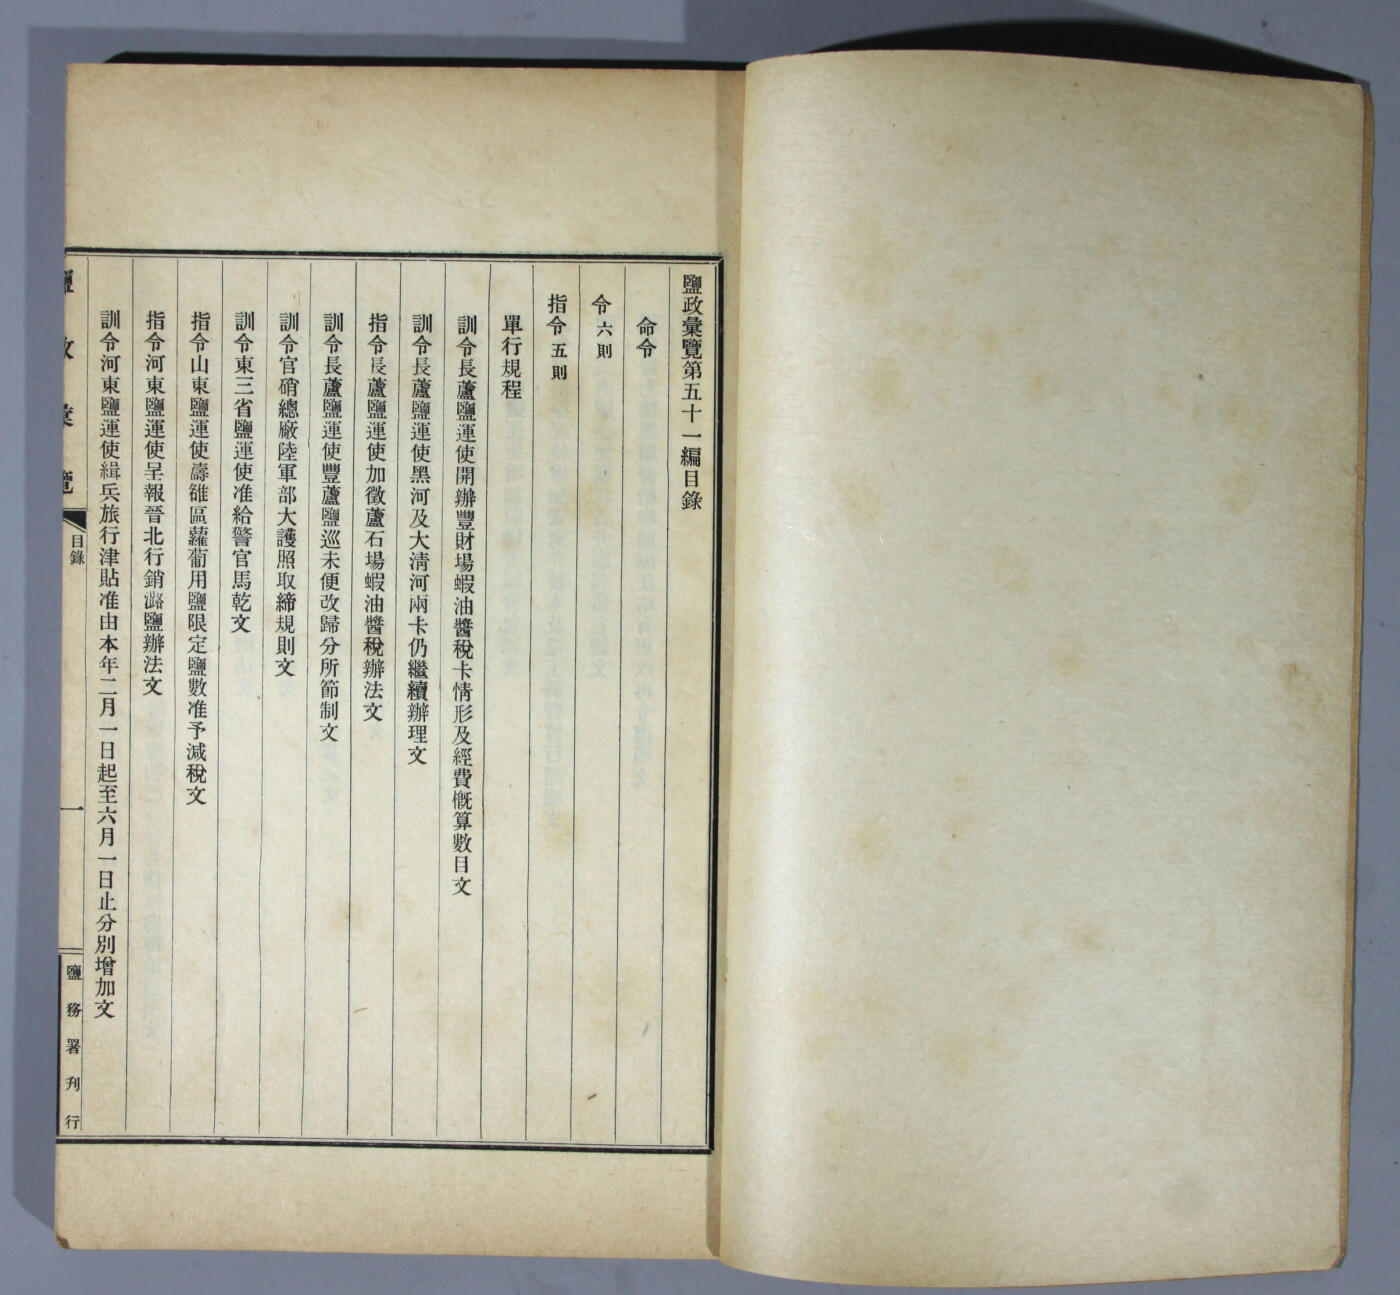 鹽政彙覽第五十一編目錄
命令
令六則
指令五則
單行規程
訓令長蘆鹽運使開辦豐財場蝦油醬稅卡情形及經費概算數目文
訓令長蘆鹽運使黑河及大清河兩卡仍繼續辦理文
指令長蘆鹽運使加徵蘆石場蝦油醬稅辦法文
訓令長蘆鹽運使豐蘆鹽巡未便改歸分所節制文
訓令官硝總廠陸軍部大護照取締規則文
訓令東三省鹽運使准給警官馬乾文
指令山東鹽運使壽雒區蘿蔔用鹽限定鹽數准予減稅文
指令河東鹽運使呈報晉北行銷潞鹽辦法文
訓令河東鹽運使緝兵旅行津貼准由本年二月一日起至六月一日止分別增加文
鹽政彙覽
目錄
一
鹽務署刋行